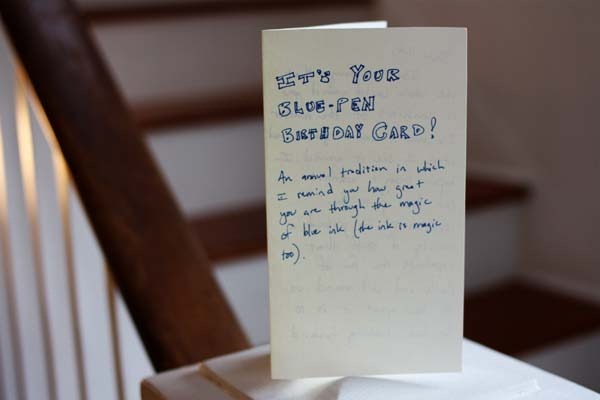 IT'S YOUR
BLUE-PEN
BIRTHDAY CARD!
An annual tradition in which
I remind you how great
you are through the magic
of blue ink (the ink is magic
too).